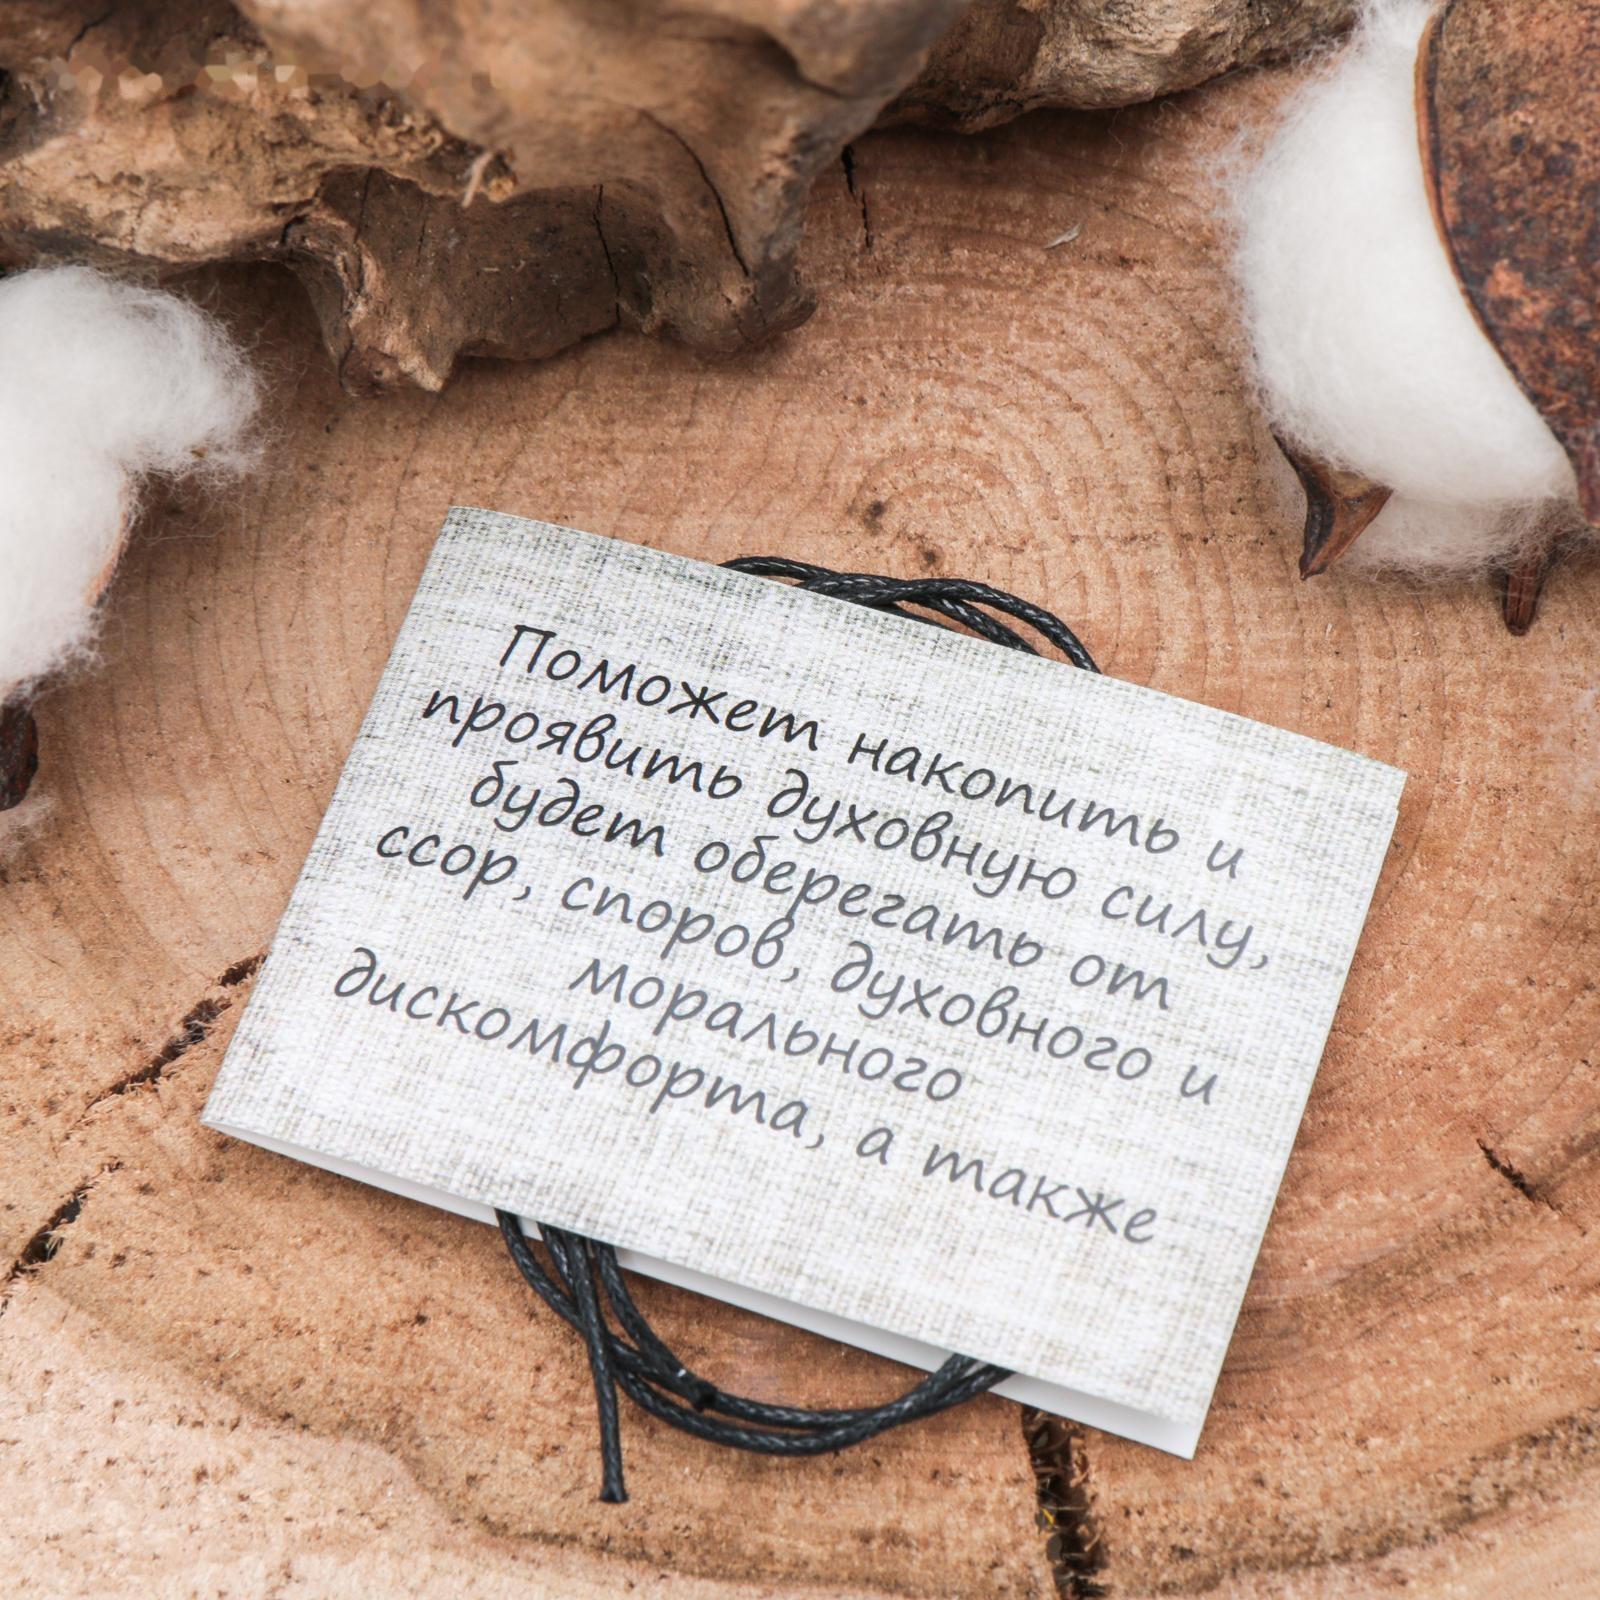 Поможет накопить и
проявить духовную силу,
будет оберегать от
ссор, споров, духовного и
морального
дискомфорта, а также